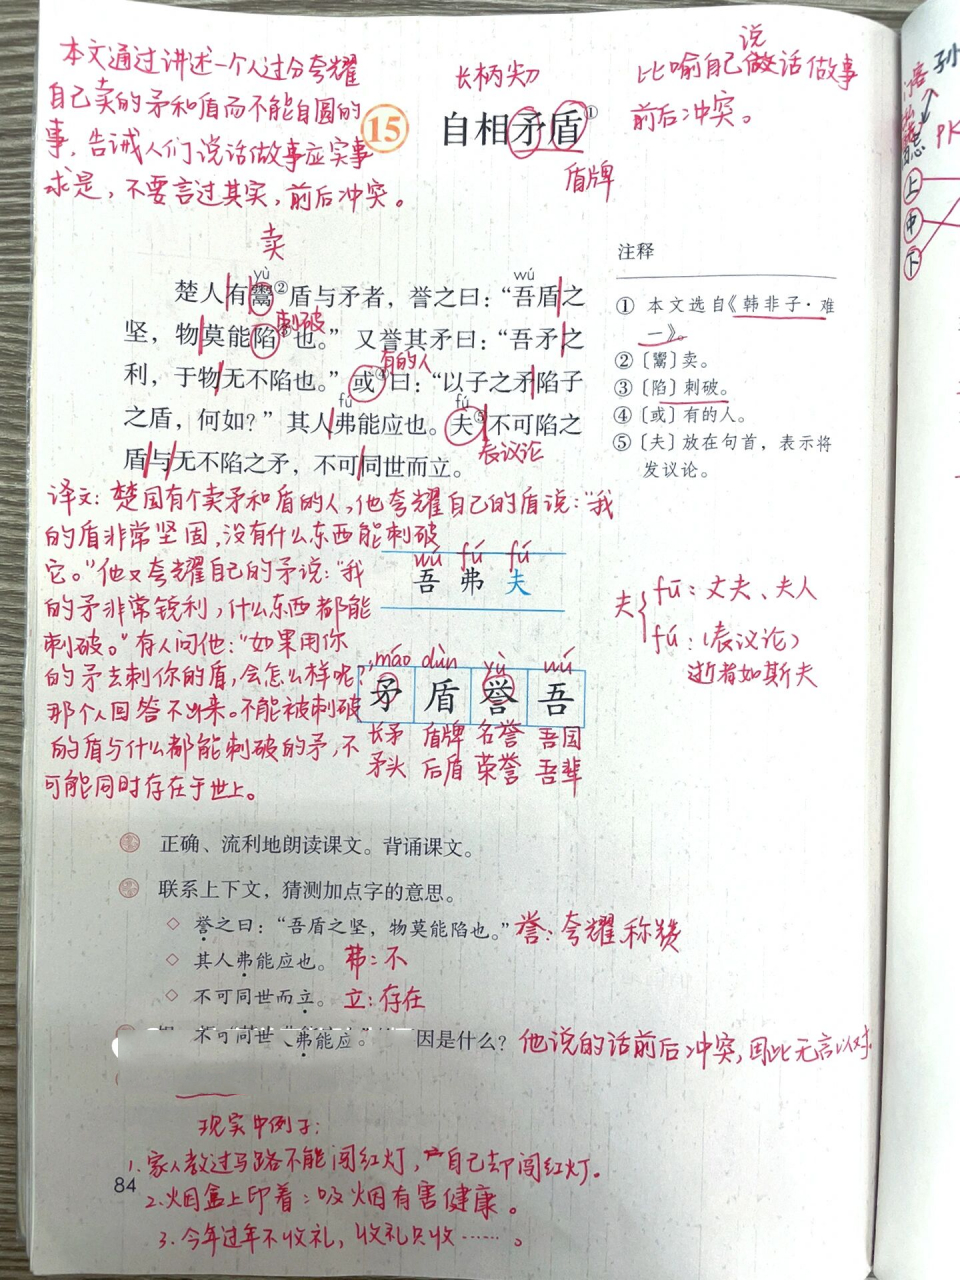 本文通过讲述一个人过分夸耀
自己卖的矛和盾而不能自圆的
事，告诫人们说话做事应实事
求是，不要言过其实，前后冲突。
长柄尖刀
15 自相矛盾①
盾牌
说
比喻自己做话做事
前后冲突。
卖
yù wú
楚人有鬻②盾与矛者，誉之曰：“吾盾之
刺破
坚，物莫能陷③也。”又誉其矛曰：“吾矛之
有的人
利，于物无不陷也。”或④曰：“以子之矛陷子
fú fú
之盾，何如？”其人弗能应也。夫⑤不可陷之
表议论
盾与无不陷之矛，不可同世而立。
注释
① 本文选自《韩非子·难
一》。
② 〔鬻〕卖。
③ 〔陷〕刺破。
④ 〔或〕有的人。
⑤ 〔夫〕放在句首，表示将
发议论。
译文：楚国有个卖矛和盾的人，他夸耀自己的盾说：“我
的盾非常坚固，没有什么东西能刺破
它。”他又夸耀自己的矛说：“我
的矛非常锐利，什么东西都能
刺破。”有人问他：“如果用你
的矛去刺你的盾，会怎么样呢？”
那个人回答不出来。不能被刺破
的盾与什么都能刺破的矛，不
可能同时存在于世上。
wú fú fú
吾 弗 夫
夫
fū：丈夫、夫人
fú：（表议论）
逝者如斯夫
máo dùn yù wú
矛 盾 誉 吾
长矛 盾牌 名誉 吾国
矛头 后盾 荣誉 吾辈
正确、流利地朗读课文。背诵课文。
联系上下文，猜测加点字的意思。
◇ 誉之曰：“吾盾之坚，物莫能陷也。” 誉：夸耀 称赞
◇ 其人弗能应也。 弗：不
◇ 不可同世而立。 立：存在
不可同世
弗能应。”
因是什么？ 他说的话前后冲突，因此无言以对。
现实中例子：
1. 家人教过马路不能闯红灯，自己却闯红灯。
2. 烟盒上印着：吸烟有害健康。
3. 今年过年不收礼，收礼只收……。
84
孙
PK
上
中
下